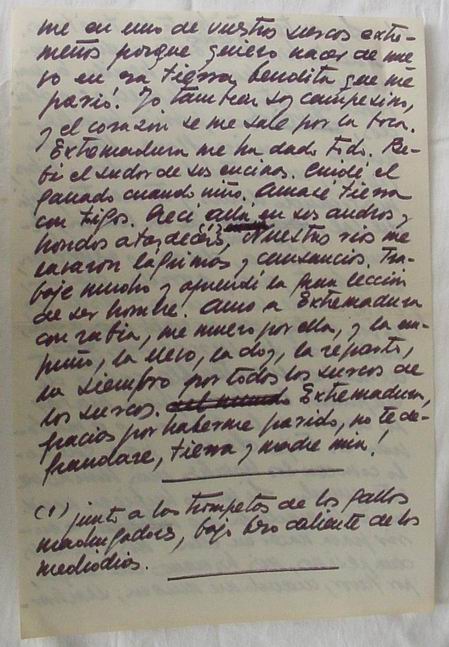 me en uno de vuestros surcos extre-
meños porque quiero nacer de nue-
vo en esa tierra bendita que me
parió! Yo también soy campesino,
y el corazón se me sale por la boca.
Extremadura me ha dado todo. Be-
bí el sudor de sus encinas. Cuidé el
ganado cuando niño. Amasé tierra
con trigos. Crecí en sus anchos y
hondos atardeceres, (1) Nuestros ríos me
lágrimas y cansancios. Tra-
bajé mucho y aprendí la gran lección
de ser hombre. Amo a Extremadura
con rabia, me muero por ella, y la em-
puño, la llevo, la doy, la reparto,
la siembro por todos los surcos de
los surcos. Extremadura,
gracias por haberme parido, no te de-
fraudaré, tierra y madre mía!
(1) junto a las trompetas de los gallos
madrugadores, bajo beso caliente de los
mediodías.